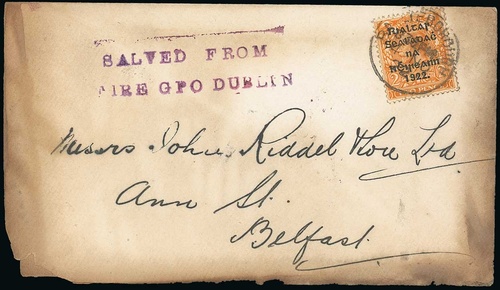 SALVED FROM
FIRE GPO DUBLIN
Rialtas
Sealadaċ
na
hÉireann
1922.
Messrs John Riddel & Son Ltd
Ann St.
Belfast.